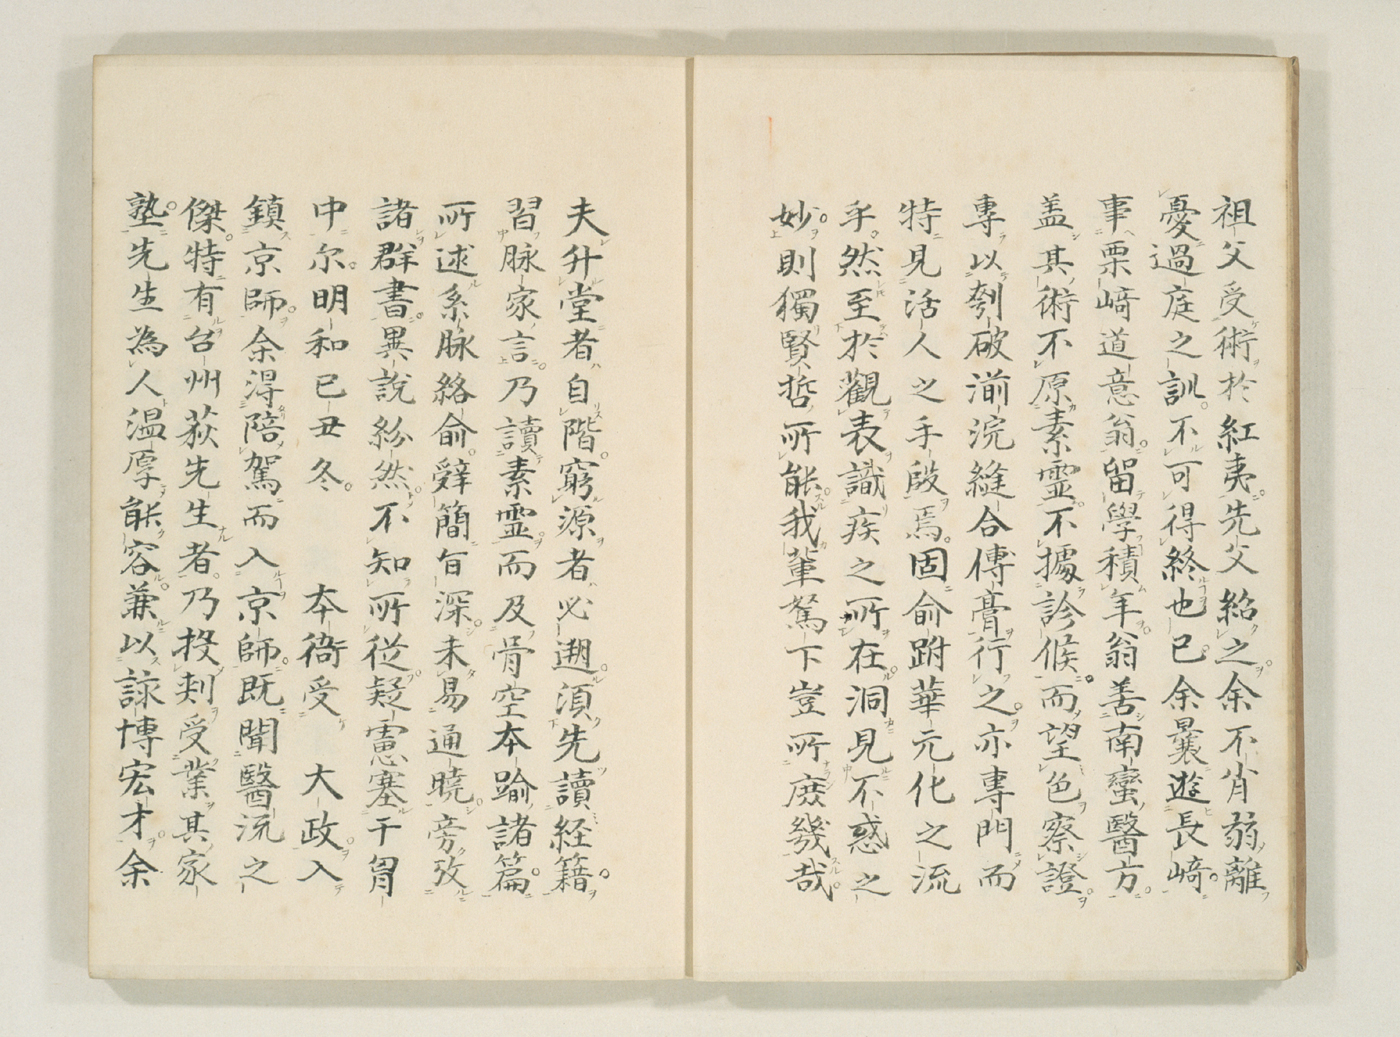 祖父受術於紅夷先父紹之余不肖弱離
憂過庭之訓不可得終也已余曩遊長﨑
事栗﨑道意翁留學積年翁善南蠻醫方
盖其術不原素霊不據診候而望色察證
專以刳破湔浣縫合傅膏行之亦専門而
特見活人之手段焉固俞跗華元化之流
乎然至於觀表識疾之所在洞見不惑之
妙則獨賢哲所能我輩駑下豈所庶幾哉
夫升堂者自階窮源者必遡湏先讀経籍
習脉家言乃讀素霊而及骨空本踰諸篇
所述系脉絡俞辤簡旨深未易通曉旁攷
諸群書異説紛然不知所從疑慮塞于胷
中尓明和已丑冬　本衙受　大政入
鎮京師余淂陪駕而入京師既聞醫流之
傑特有台州荻先生者乃投刾受業其家
塾先生為人溫厚能容兼以諒博宏才余